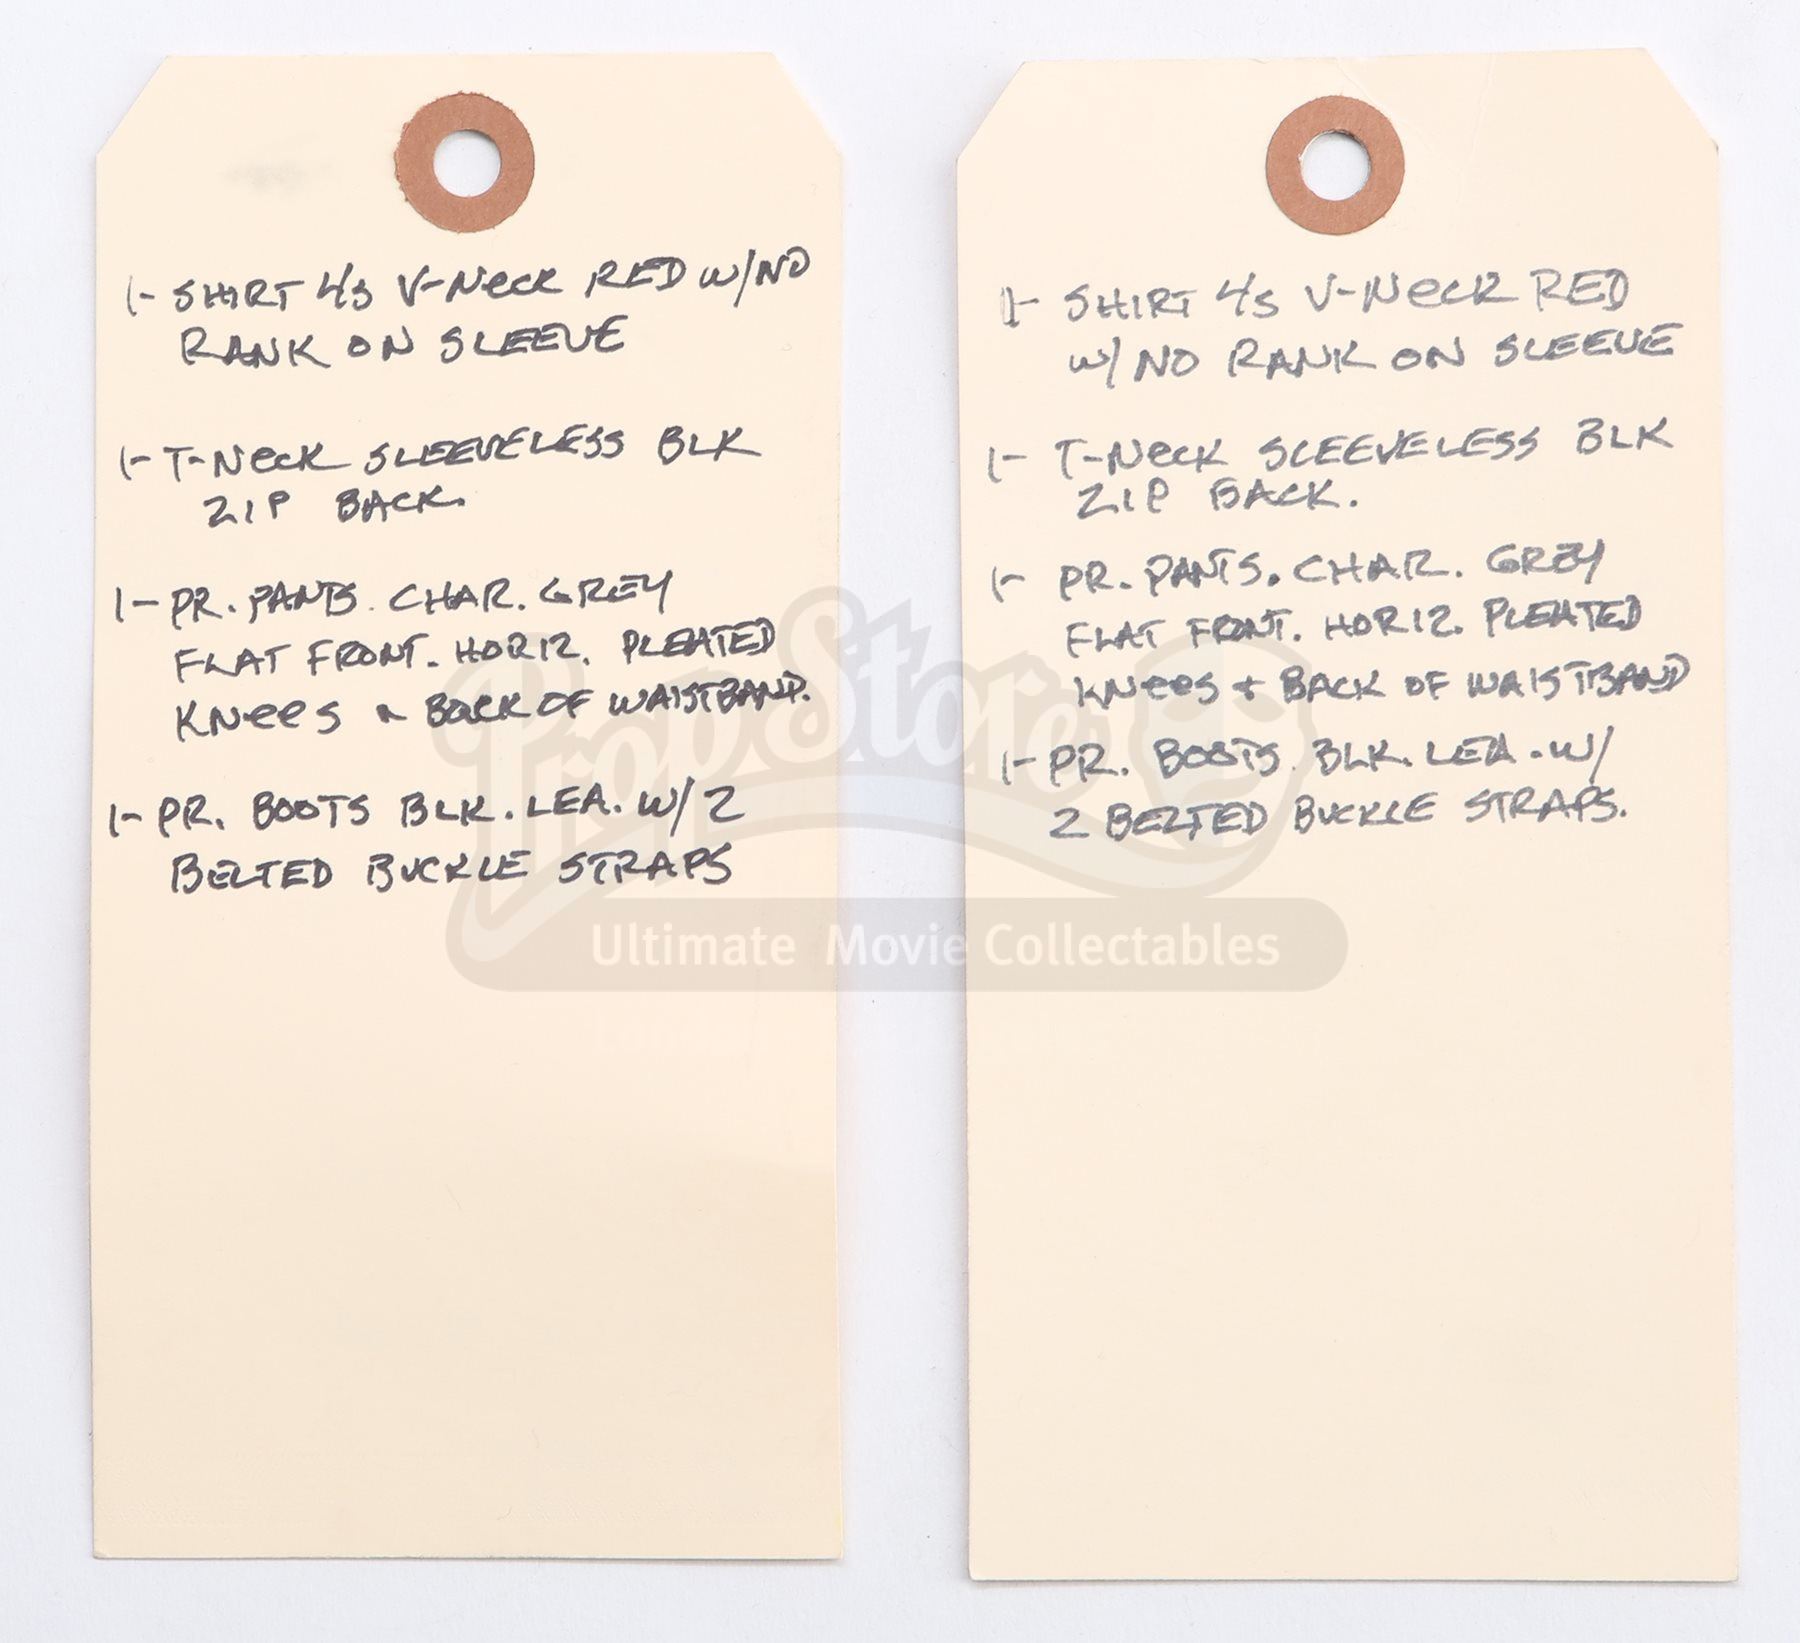 1- SHIRT L/S V-NECK RED W/NO
RANK ON SLEEVE
1- T-NECK SLEEVELESS BLK
ZIP BACK.
1- PR. PANTS. CHAR. GREY
FLAT FRONT. HORIZ. PLEATED
KNEES & BACK OF WAISTBAND.
1- PR. BOOTS BLK. LEA. W/ 2
BELTED BUCKLE STRAPS
1- SHIRT L/S V-NECK RED
W/ NO RANK ON SLEEVE
1- T-NECK SLEEVELESS BLK
ZIP BACK.
1- PR. PANTS. CHAR. GREY
FLAT FRONT. HORIZ. PLEATED
KNEES + BACK OF WAISTBAND
1- PR. BOOTS. BLK. LEA. W/
2 BELTED BUCKLE STRAPS.
Prop Store
Ultimate Movie Collectables